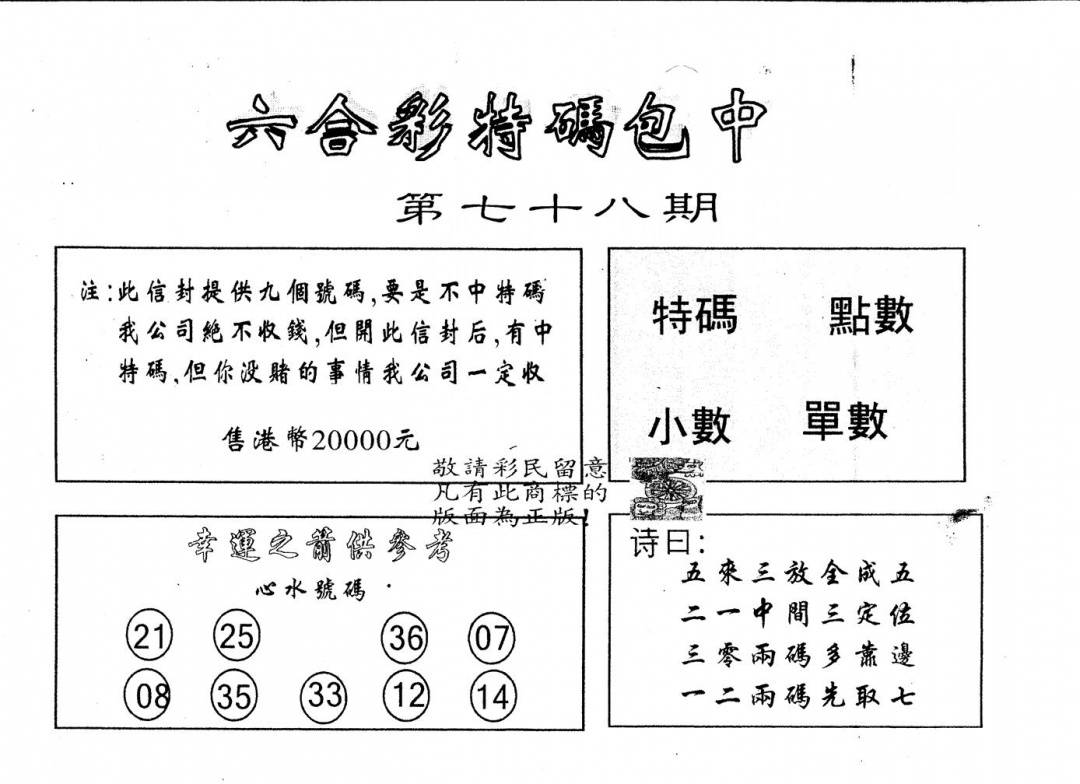 六合彩特碼包中
第七十八期
注:此信封提供九個號碼,要是不中特碼
我公司絕不收錢,但開此信封后,有中
特碼,但你没賭的事情我公司一定收
售港幣20000元
特碼 點數
小數 單數
敬請彩民留意
凡有此商標的
版面為正版!
幸運之箭供參考
心水號碼
21 25 36 07
08 35 33 12 14
诗曰:
五來三放全成五
二一中間三定位
三零兩碼多靠邊
一二兩碼先取七